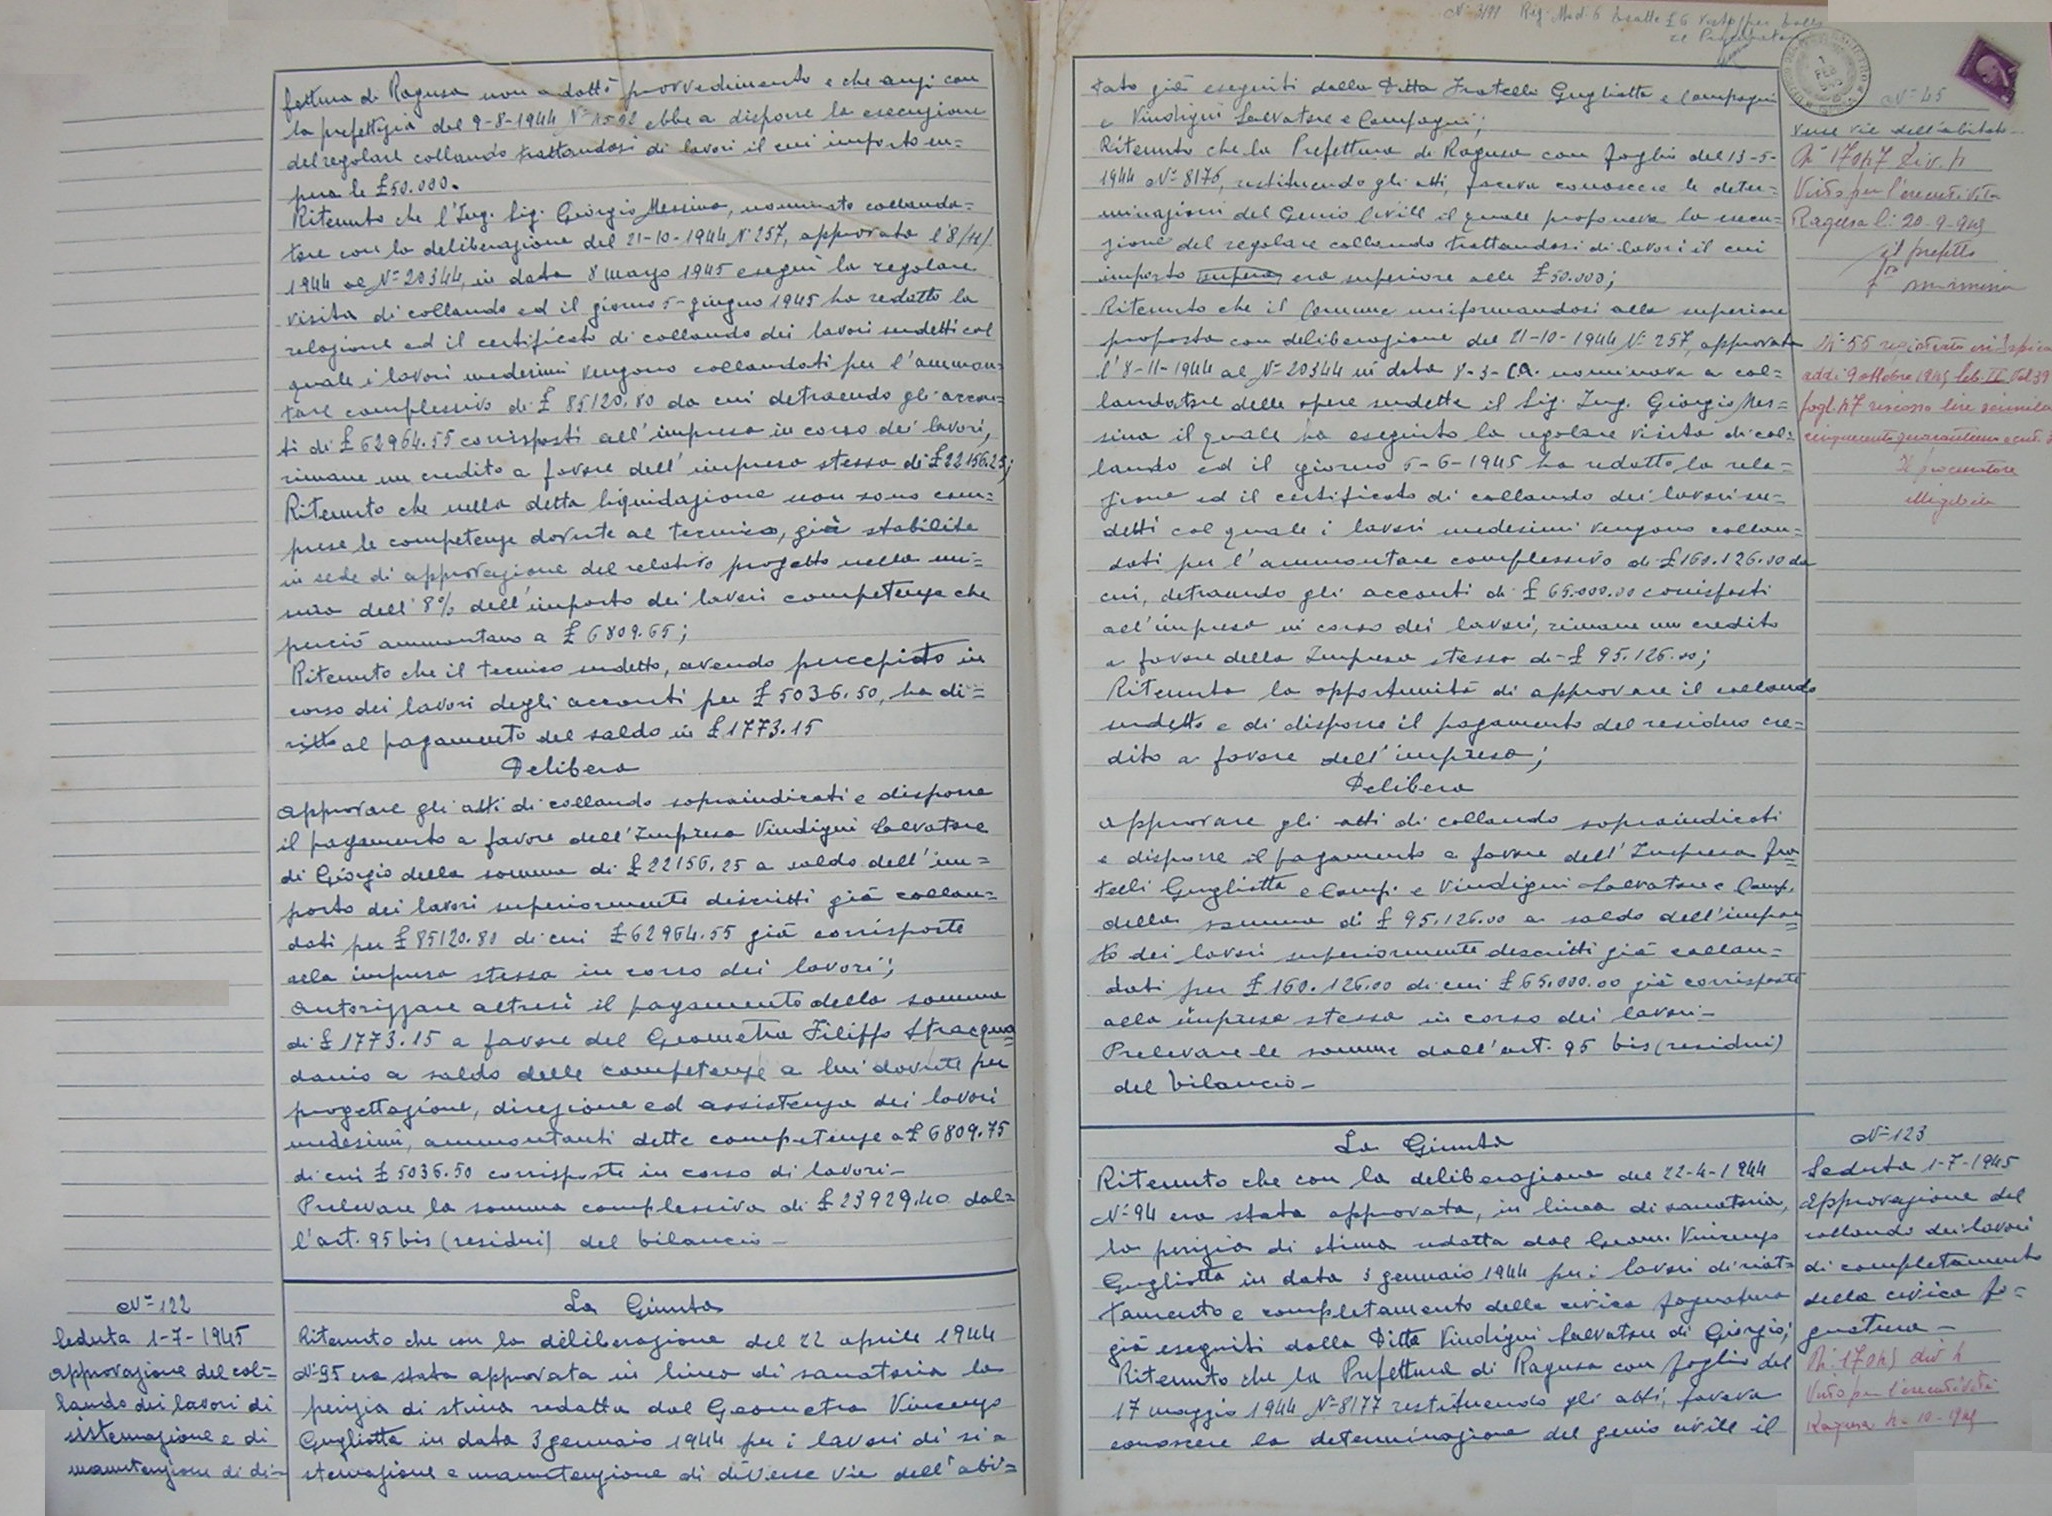 fettura di Ragusa non adottò provvedimento e che anzi con
la prefettizia del 9-8-1944 N= 1592 ebbe a disporre la esecuzione
del regolare collaudo trattandosi di lavori il cui importo su=
pera le £50.000.
Ritenuto che l'Ing. Sig. Giorgio Messina, nominato collauda=
tore con la deliberazione del 21-10-1944 N. 257, approvata l'8/11/
1944 al N= 20344, in data 8 marzo 1945 eseguì la regolare
visita di collaudo ed il giorno 5-giugno 1945 ha redatto la
relazione ed il certificato di collaudo dei lavori sudetti col
quale i lavori medesimi vengono collaudati per l'ammon=
tare complessivo di £ 85120.80 da cui detraendo gli accon=
ti di £ 62964.55 corrisposti all'impresa in corso dei lavori,
rimane un credito a favore dell'impresa stessa di £22156.25;
Ritenuto che nella detta liquidazione non sono com=
prese le competenze dovute al tecnico, già stabilite
in sede di approvazione del relativo progetto nella mi=
sura dell'8% dell'importo dei lavori competenze che
perciò ammontano a £ 6809.65;
Ritenuto che il tecnico sudetto, avendo percepito in
corso dei lavori degli acconti per £ 5036.50, ha di=
ritto al pagamento del saldo in £1773.15
Delibera
approvare gli atti di collaudo sopraindicati e disporre
il pagamento a favore dell'Impresa Vindigni Salvatore
di Giorgio della somma di £22156.25 a saldo dell'im=
porto dei lavori superiormente discritti già collau=
dati per £85120.80 di cui £62964.55 già corrisposte
alla impresa stessa in corso dei lavori;
Autorizzare altresì il pagamento della somma
di £1773.15 a favore del Geometra Filippo Stracqua=
danio a saldo delle competenze a lui dovute per
progettazione, direzione ed assistenza dei lavori
medesimi, ammontanti dette competenze a £ 6809.75
di cui £ 5036.50 corrisposte in corso di lavori-
Prelevare la somma complessiva di £23929.40 dal=
l'art. 95 bis (residui) del bilancio-
N= 122
Seduta 1-7-1945
approvazione del col=
laudo dei lavori di
sistemazione e di
manutenzione di di=
La Giunta
Ritenuto che con la deliberazione del 22 aprile 1944
N=95 era stata approvata in linea di sanatoria la
perizia di stima redatta dal Geometra Vincenzo
Gugliotta in data 3 gennaio 1944 per i lavori di si=
stemazione e manutenzione di diverse vie dell'abi=
N= 3191
tato già eseguiti dalla Ditta Fratelli Gugliotta e Compagni
e Vindigni Salvatore e Compagni;
Ritenuto che la Prefettura di Ragusa con foglio del 13-5-
1944 N= 8176, restituendo gli atti, faceva conoscere le deter=
minazioni del Genio Civile il quale proponeva la esecu=
zione del regolare collaudo trattandosi di lavori il cui
importo supera era superiore alle £50.000;
Ritenuto che il Comune uniformandosi alla superiore
proposta con deliberazione del 21-10-1944 N= 257, approvata
l'8-11-1944 al N= 20344 in data 8-3-c.a. nominava a col=
laudatore delle opere sudette il Sig. Ing. Giorgio Mes=
sina il quale ha eseguito la regolare visita di col=
laudo ed il giorno 5-6-1945 ha redatto la rela=
zione ed il certificato di collaudo dei lavori su=
detti col quale i lavori medesimi vengono collau=
dati per l'ammontare complessivo di £160.126.00 da
cui, detraendo gli acconti di £ 65.000.00 corrisposti
all'impresa in corso dei lavori, rimane un credito
a favore della Impresa stessa di £ 95.126.00;
Ritenuta la opportunità di approvare il collaudo
sudetto e di disporre il pagamento del residuo cre=
dito a favore dell'impresa;
Delibera
approvare gli atti di collaudo sopraindicati
e disporre il pagamento a favore dell'Impresa Fra=
telli Gugliotta e Comp. e Vindigni Salvatore e Comp.
della somma di £ 95.126.00 a saldo dell'impor=
to dei lavori superiormente descritti già collau=
dati per £ 160.126.00 di cui £65.000.00 già corrisposte
alla impresa stessa in corso dei lavori-
Prelevare le somme dall'art. 95 bis (residui)
del bilancio-
N= 45
verse vie dell'abitato-
N= 17047 Div. 4
Visto per l'esecutività
Ragusa li 20-9-945
il prefetto
N= 55 registrato in
addì 9 ottobre 1945 lib. II Vol 39
fogl. 47 riscosse lire seimila
cinquecento
Il procuratore
La Giunta
Ritenuto che con la deliberazione del 22-4-1944
N= 94 era stata approvata, in linea di sanatoria,
la perizia di stima redatta dal Geom. Vincenzo
Gugliotta in data 3 gennaio 1944 per i lavori di riat=
tamento e completamento della civica fognatura
già eseguiti dalla Ditta Vindigni Salvatore di Giorgio;
Ritenuto che la Prefettura di Ragusa con foglio del
17 maggio 1944 N=8177 restituendo gli atti, faceva
conoscere la determinazione del genio civile il
N= 123
Seduta 1-7-1945
approvazione del
collaudo dei lavori
di completamento
della civica fo=
gnatura-
N= 17045 div 4
Visto per l'esecutività
Ragusa 4-10-945